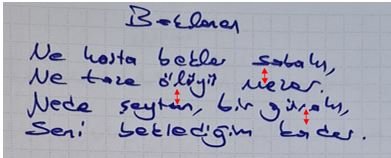 Beklenen
Ne hasta bekler sabahı,
Ne taze ölüyü mezar.
Nede şeytan, bir günahı,
Seni beklediğim kadar.